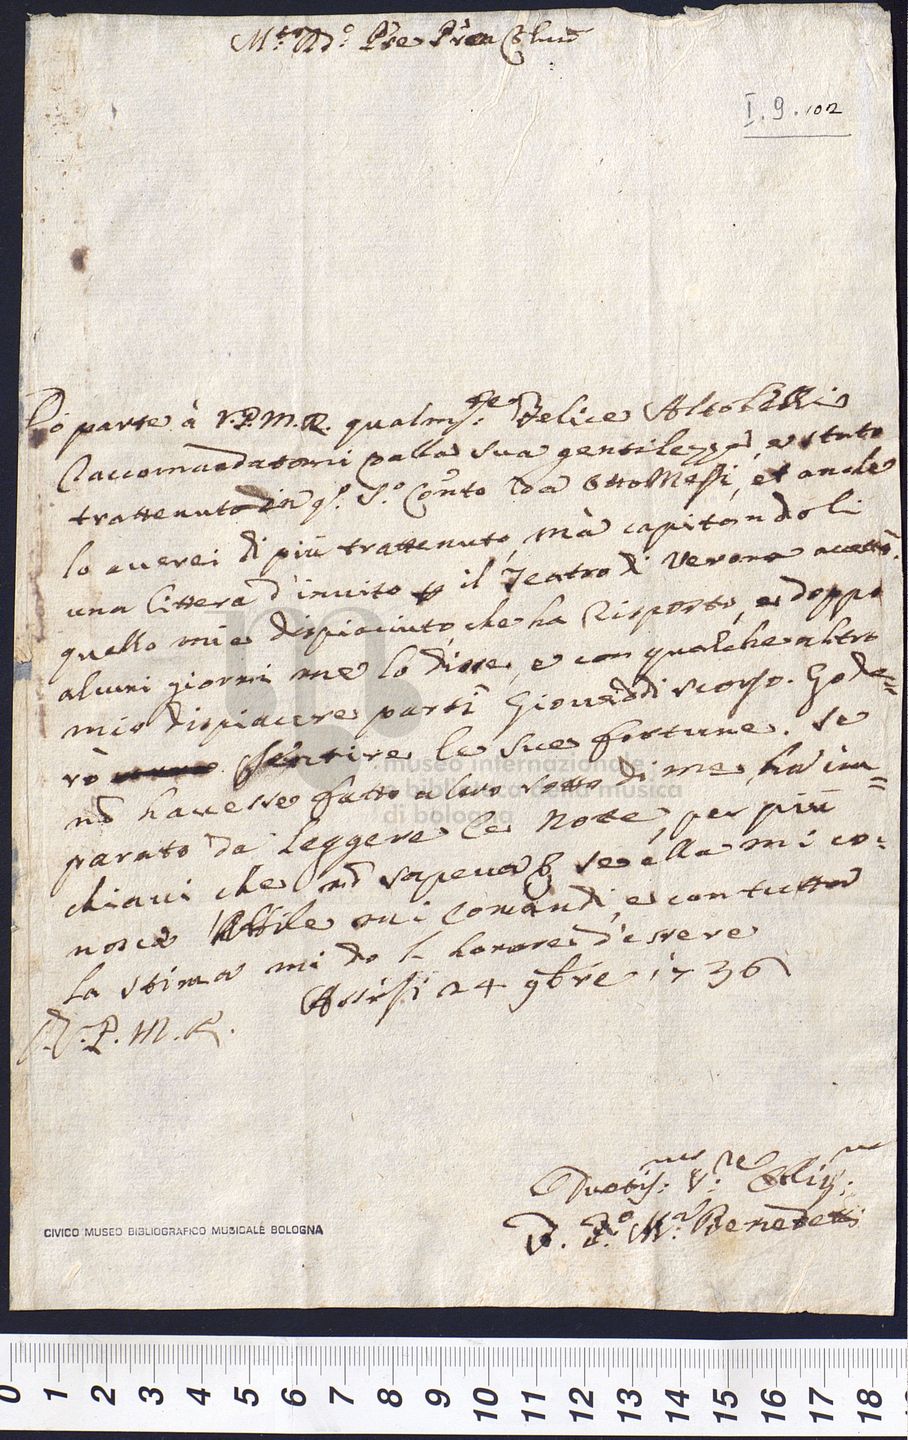 M.to R.do P.re P.ron Col.mo
I. 9. 102
Dò parte à V.P.M.R. qualm.te Felice Altobelli
Raccomandatomi dalla sua gentilezza, e stato
trattenuto in q.o S.o Conto da Otto Messi, et anche
lo averei di più trattenuto, mà capitandoli
una littera d'invito p il Teatro di Verona accettò.
quello mi e dispiaciuto, che ha risposto, e doppo
alcuni giorni me lo disse, e con qualche altro
mio dispiacere partì Gioveddì scorso. Gode=
rò sentire le sue fortune. Se
nō havesse fatto altro sotto di me, ha im=
parato da leggere le Notte, per più
chiavi che nō sapeva, e se ella mi co=
nosce abile mi comandi, e con tutta
la stima mi do l' honore d'essere
D.V.P.M.R. Assisi 24 9bre 1736
Devotis.mo S.re Oblig.mo
F. F.co M.a Benedetti
CIVICO MUSEO BIBLIOGRAFICO MUSICALE BOLOGNA
museo internazionale
e biblioteca della musica
di bologna
0 1 2 3 4 5 6 7 8 9 10 11 12 13 14 15 16 17 18